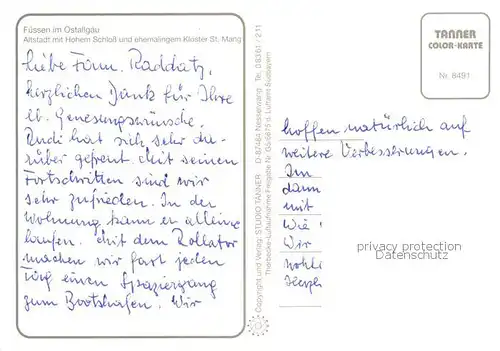 Füssen im Ostallgäu
Altstadt mit Hohem Schloß und ehemaligem Kloster St. Mang
Liebe Fam. Raddatz,
herzlichen Dank für Ihre
lb. Genesungswünsche.
Rudi hat sich sehr da-
rüber gefreut. Mit seinen
Fortschritten sind wir
sehr zufrieden. In der
Wohnung kann er alleine
laufen. Mit dem Rollator
machen wir fast jeden
Tag einen Spaziergang
zum Bootshafen. Wir
Copyright und Verlag STUDIO TANNER D-87484 Nesselwang Tel. 08361/211
TANNER
COLOR-KARTE
Nr. 8491
hoffen natürlich auf
weitere Verbesserungen.
Im
dann
mit
Wie
Wir
privacy protection
Datenschutz